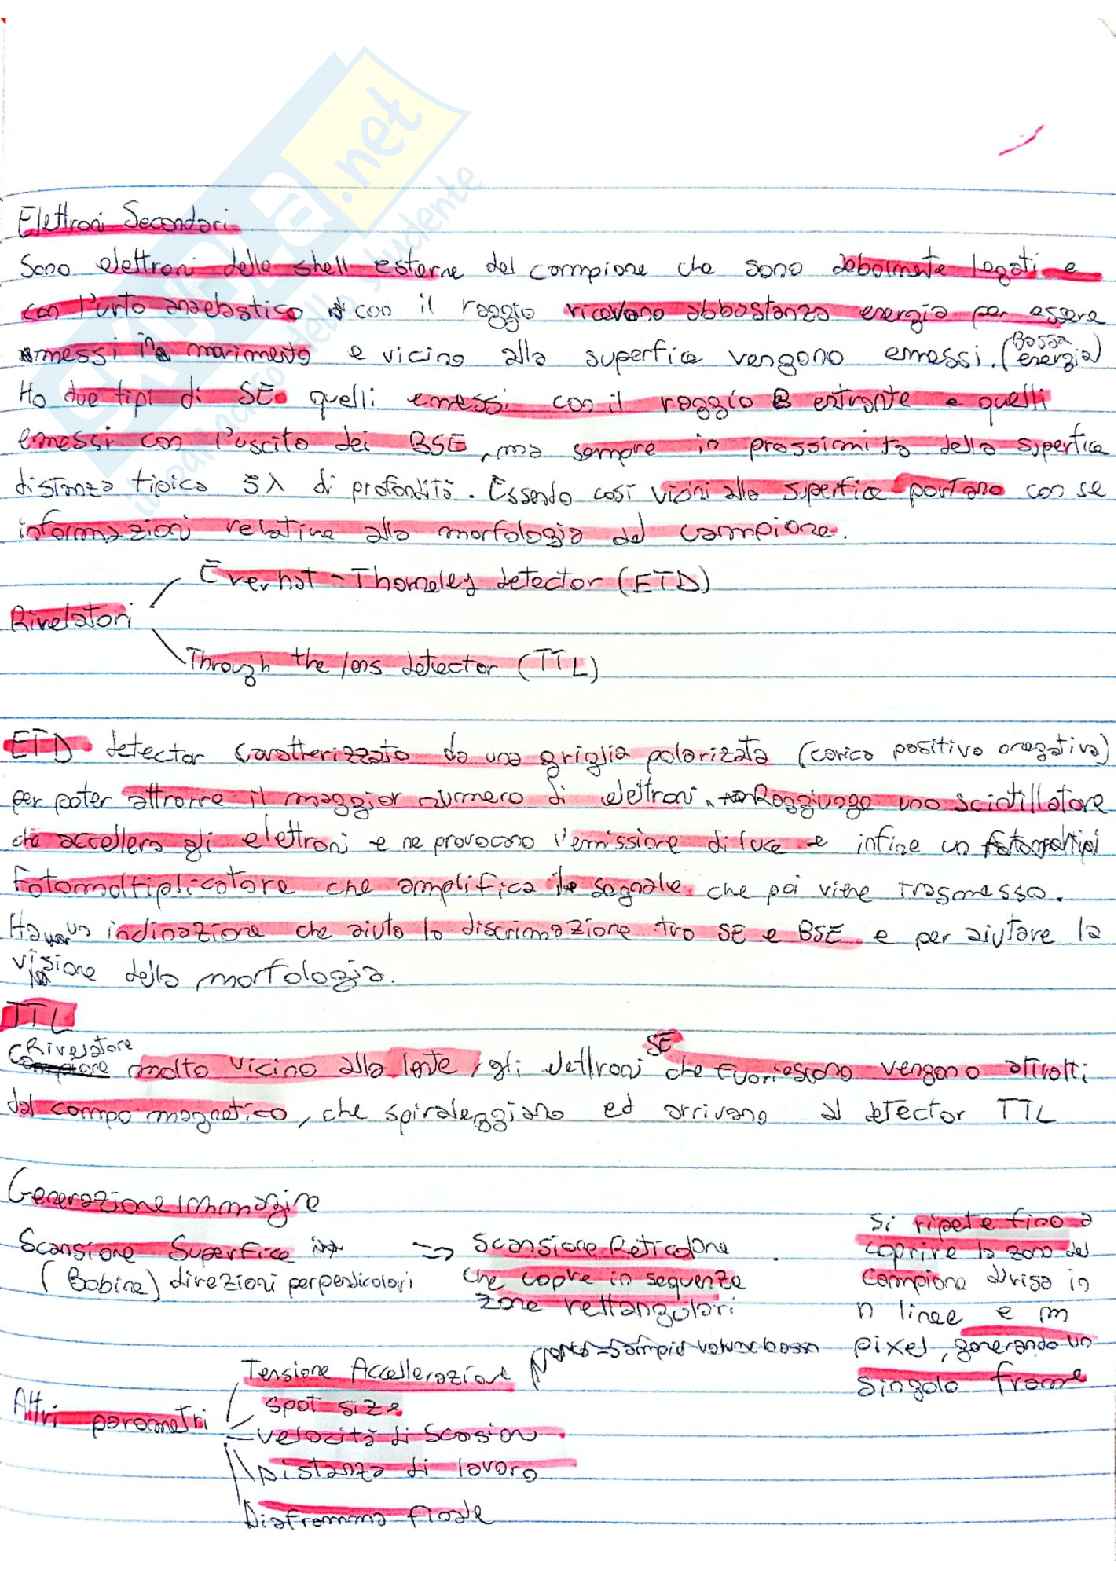 Elettroni Secondari
Sono elettroni delle shell esterne del campione che sono debolmente legati e
con l'urto anaelastico con il raggio ricevono abbastanza energia per essere
messi in movimento e vicino alla superfice vengono emessi. (Bassa energia)
Ho due tipi di SE quelli emessi con il raggio entrante e quelli
emessi con l'uscita dei BSE, ma sempre in prossimità della superfice
distanza tipica 5λ di profondità. Essendo così vicini alla superfice portano con se
informazioni relative alla morfologia del campione.
Everhat - Thorneley detector (ETD)
Rivelatori
Through the lens detector (TTL)
ETD detector caratterizzato da una griglia polarizata (carica positiva o negativa)
per poter attrarre il maggior numero di elettroni. Raggiungo uno scintillatore
che accellera gli elettroni e ne provocono l'emissione di luce e infine un
Fotomoltiplicatore che amplifica il segnale che poi viene trasmesso.
Ha un inclinazione che aiuta la discrimazione tra SE e BSE e per aiutare la
visione della morfologia.
TTL
Rivelatore molto vicino alla lente, gli elettroni SE che fuoriescono vengono attratti
dal campo magnetico, che spiraleggiano ed arrivano al detector TTL
Generazione Immagine
Scansione Superfice
(Bobine) direzioni perpendicolari
=> Scansione Reticolare
che copre in sequenza
zone rettangolari
Si ripete fino a
coprire la zona del
campione divisa in
n linee e m
pixel, generando un
singolo frame
Altri parametri
Tensione Accellerazione
spot size
velocità di Scasion
Distanza di lavoro
Diaframma finale
dell studente
.net